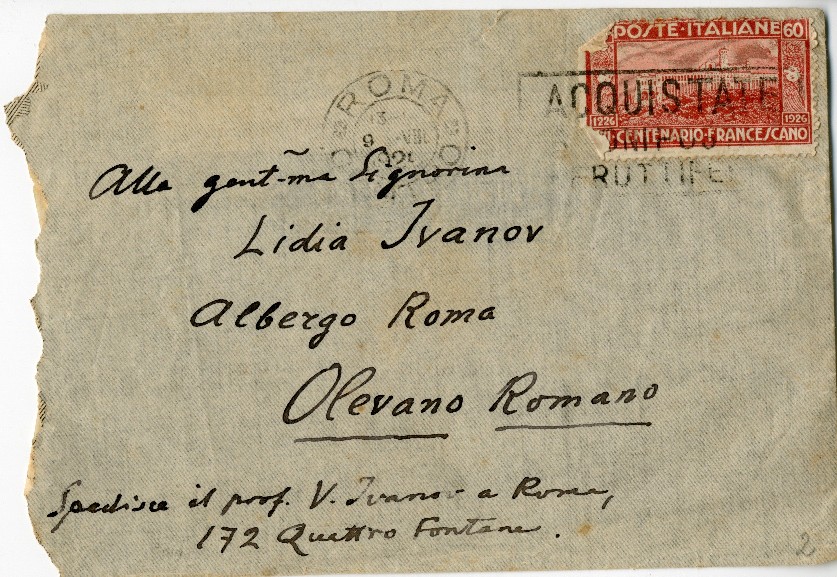 POSTE·ITALIANE 60
1226 1926
CENTENARIO·FRANCESCANO
ROMA
ACQUISTATE
FRUTTIFE
Alla gent-ma Signorina
Lidia Ivanov
Albergo Roma
Olevano Romano
Spedisce il prof. V. Ivanov a Roma,
172 Quattro Fontane.
2